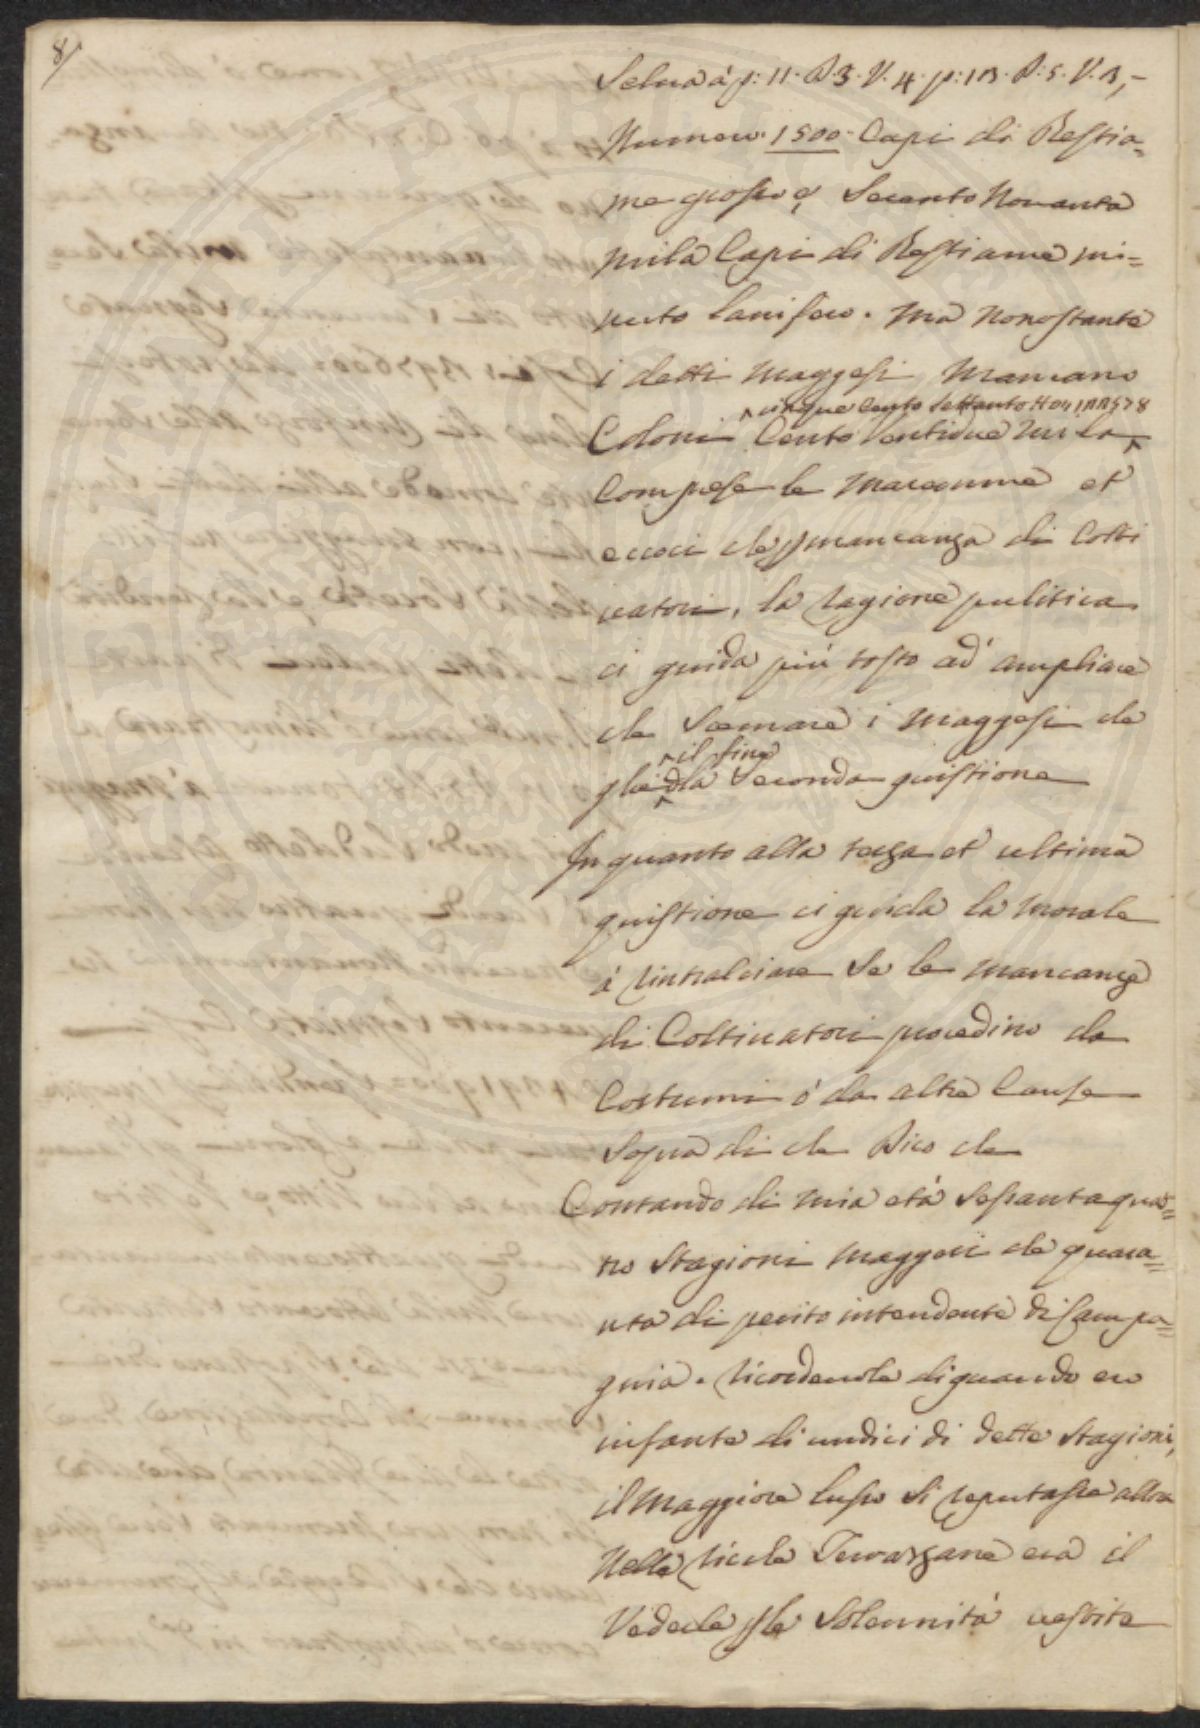 8/
Selua à p: 11. R. 3. V. 4. p: 13. R. 5. V. 3,-
Numero 1500. Capi di Bestia=
me grosso e Secento Nouanta
mila Capi di Bestiame mi=
nuto lanifero. Ma nonostante
i detti Maggesi Mancano
cinque Cento Settanto Hotj 122578
Coloni Cento Ventidue Mila
Comprese le Maremme et
eccoci che p mancanza di Colti
uatori, la ragione pulitica
ci guida più tosto ad' ampliare
che Scemare i Maggesi che
il fine
glie dla Seconda quistione
In quanto alla terza et ultima
quistione ci guida la Morale
à rintralciare Se le mancanze
di Coltiuatori procedino da
Costumi ó da altre Cause
Sopra di che Dico che
Contando di mia età Sessantaqua=
tro Stagioni Maggiori che quara=
nta di perito intendente di Campa=
gnia. ricordeuole di quando ero
infante di undici di dette Stagioni,
il Maggiore lusso Si reputasse allora
Nelle ricche era il
Vederle p le Solennità uestite